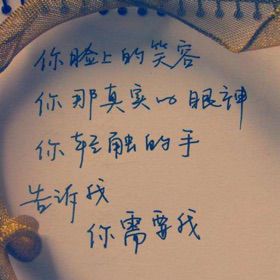 你脸上的笑容
你那真实的眼神
你轻触的手
告诉我
你需要我